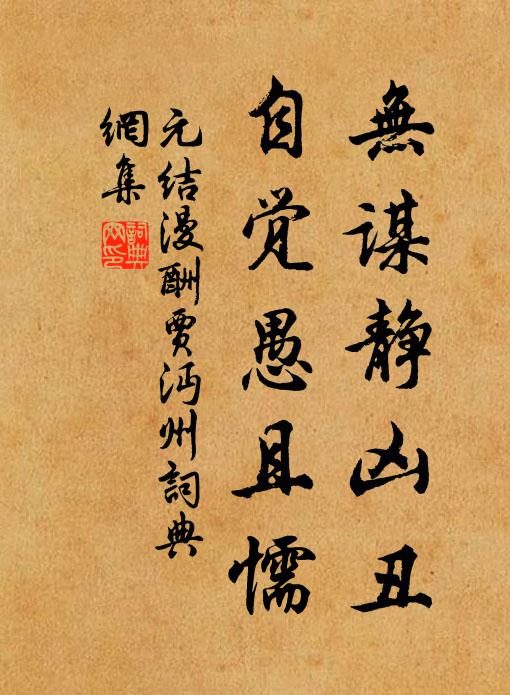 無谋静凶丑
自觉愚且懦
元结漫酬贾沔州詞典
網集
詞典
网印